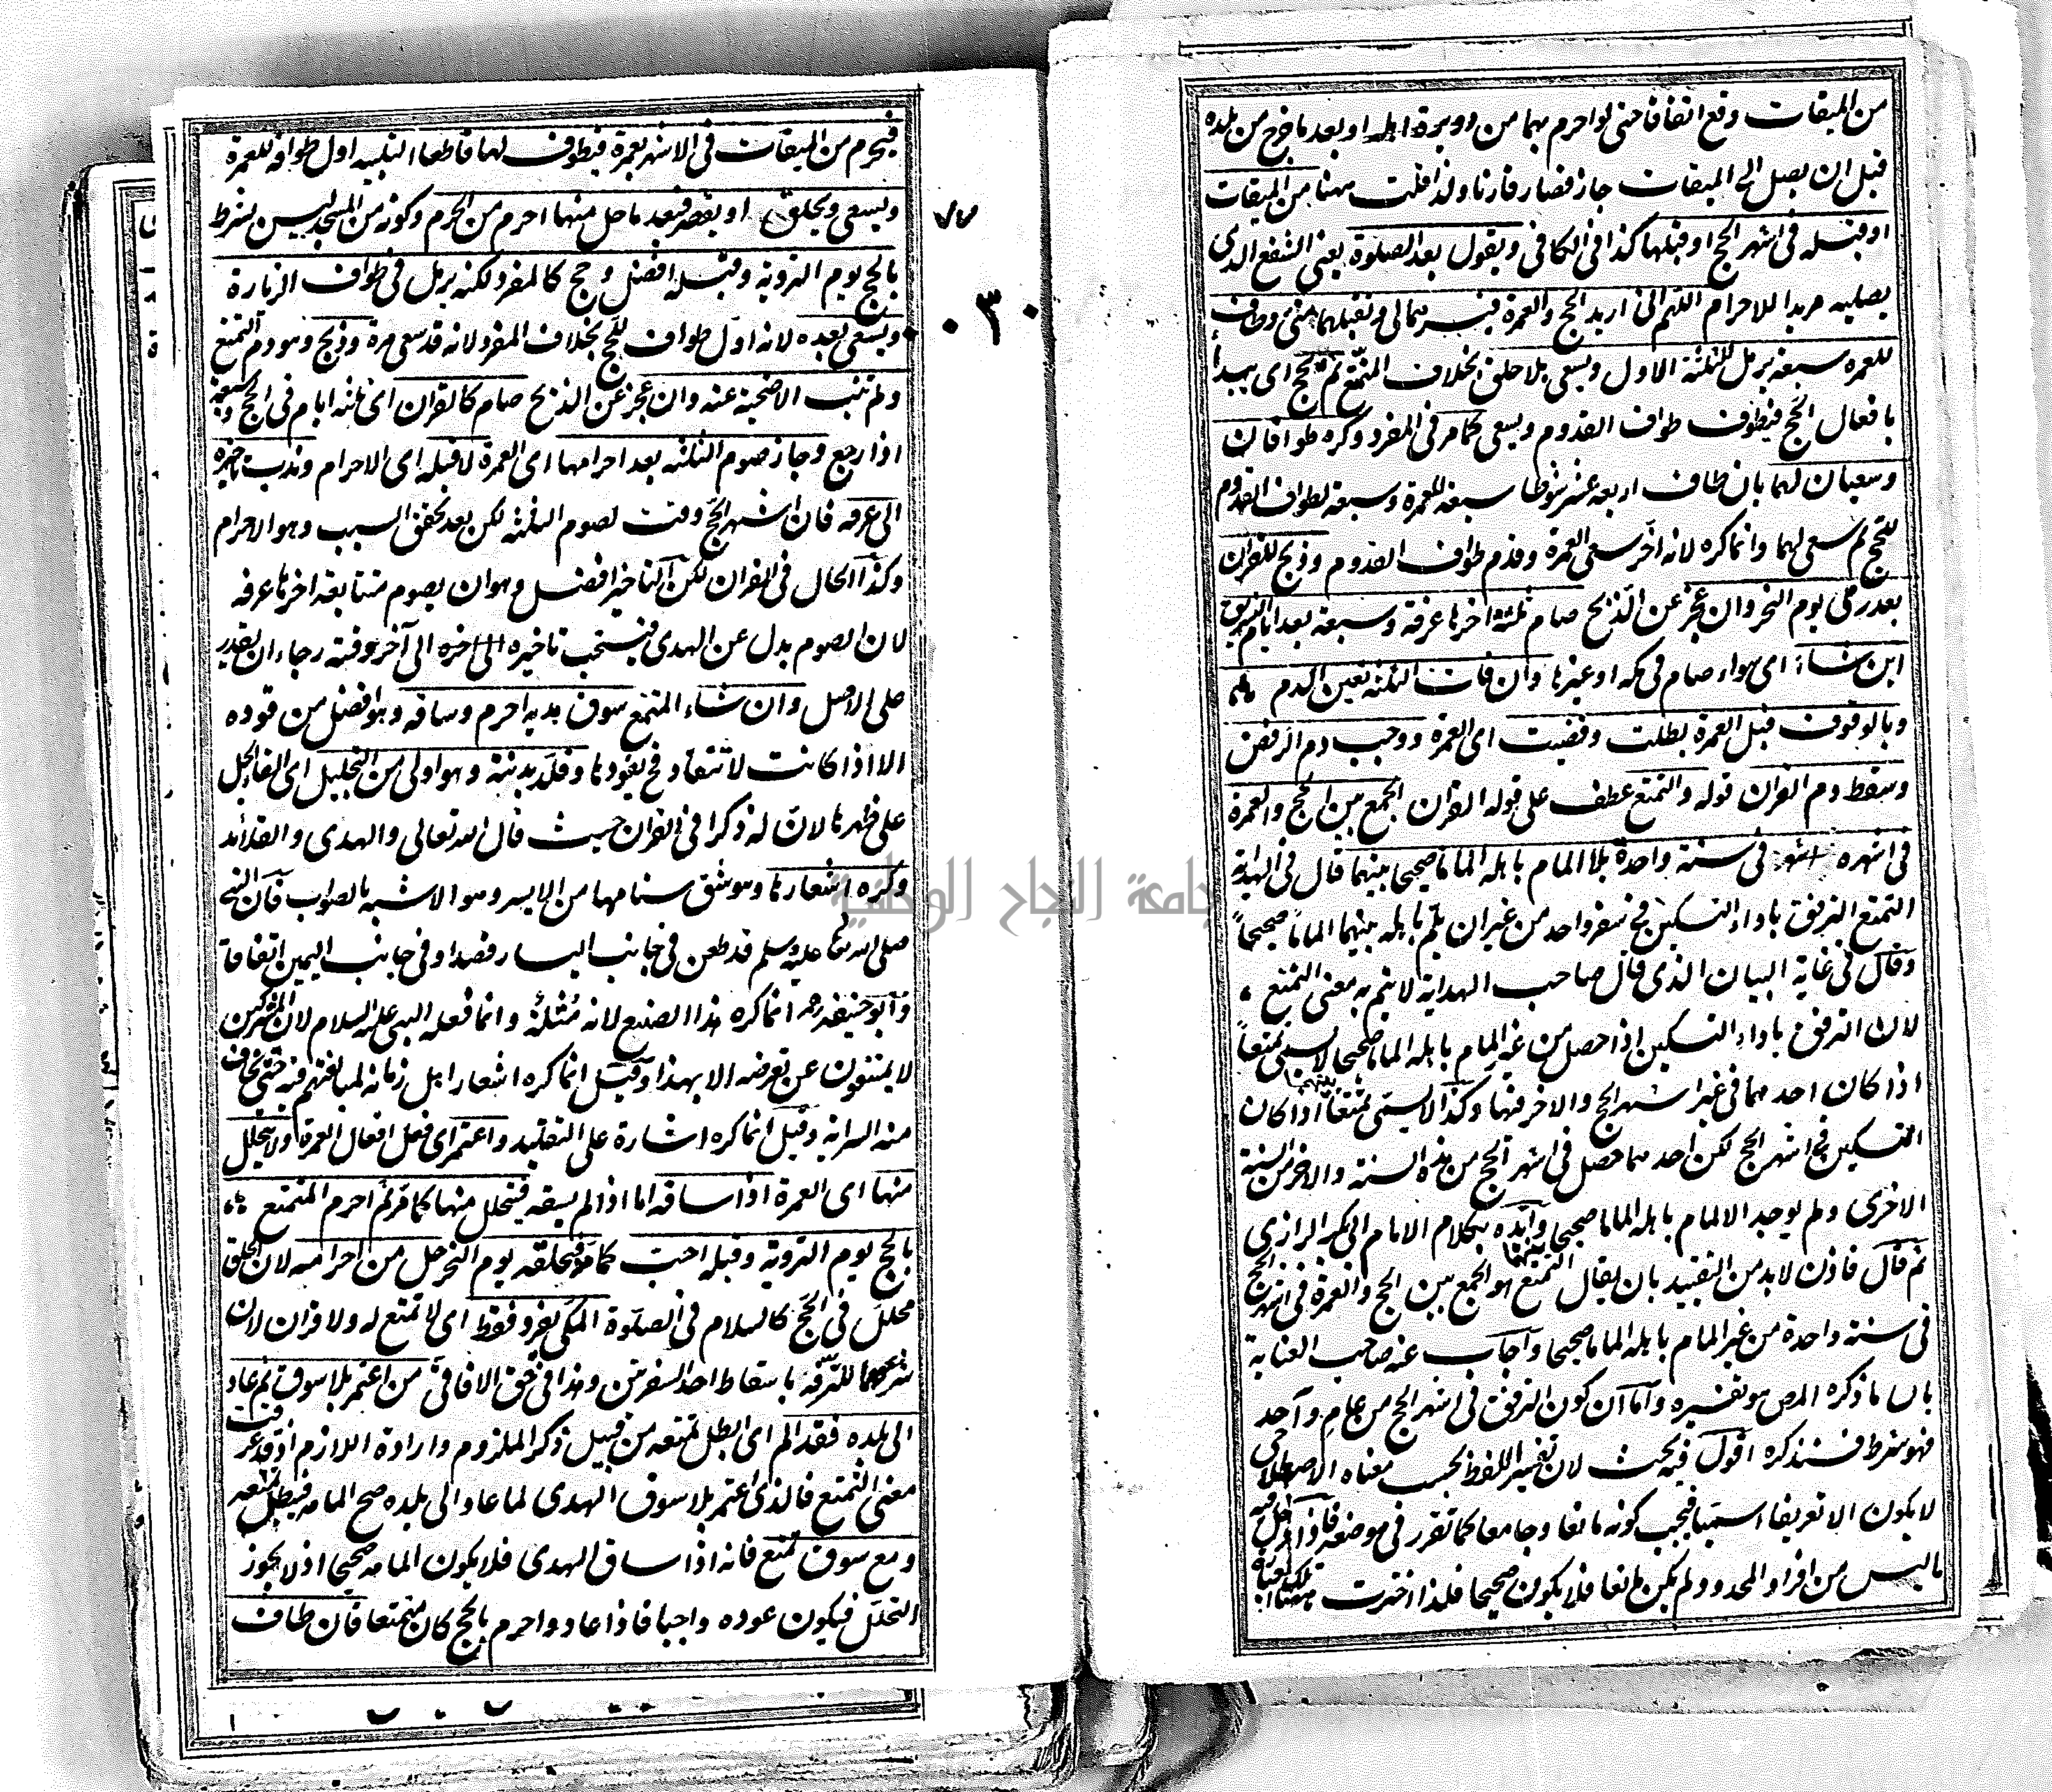 من الميقات وقع اتفاقا حتى لو احرم بهما من دويرة اهله او بعد ما خرج من بلده
قبل ان يصل الى الميقات جاز فصار قارنا ولذا قلت ههنا من الميقات
او قبله في اشهر الحج او قبلها كذا في الكافي ويقول بعد الصلوة يعني الشفع الذي
يصليه مريدا للاحرام اللهم انى اريد الحج والعمرة فيسرهما لي وتقبلهما منى وطاف
للعمرة سبعة يرمل للثلثة الاول ويسعى بلا حلق بخلاف المتمتع ثم يحج اى يبدأ
بافعال الحج فيطوف طواف القدوم ويسعى كما مر في المفرد وكره طوافان
وسعيان لهما بان طاف اربعة عشر شوطا سبعة للعمرة وسبعة لطواف القدوم
للحج ثم سعى لهما وانما كره لانه اخر سعى العمرة وقدم طواف القدوم وذبح للقران
بعد رمى يوم النحر وان عجز عن الذبح صام ثلثة اخرها عرفة وسبعة بعد ايام التشريق
اين شاء اى سواء صام في مكة او غيرها وان فات الثلثة تعين الدم
وبالوقوف قبل العمرة بطلت وقضيت اى العمرة ووجب دم الرفض
وسقط دم القران قوله والتمتع عطف على قوله القران الجمع بين الحج والعمرة
في اشهره في سنة واحدة بلا المام باهله الماما صحيحا بينهما قال في الهداية
التمتع الترفق باداء النسكين في سفر واحد من غير ان يلم باهله بينهما الماما صحيحا
وقال في غاية البيان الذي قال صاحب الهداية لا يتم به معنى التمتع
لان الترفق باداء النسكين اذا حصل من غير المام باهله الماما صحيحا لا يسمى تمتعا
اذا كان احدهما في غير اشهر الحج والاخر فيها وكذا لا يسمى تمتعا اذا كان
النسكين في اشهر الحج لكن احدهما حصل في اشهر الحج من هذه السنة والاخر من السنة
الاخرى ولم يوجد الالمام باهله الماما صحيحا بينهما وايده بكلام الامام ابى بكر الرازي
ثم قال فاذن لابد من التقييد بان يقال التمتع هو الجمع بين الحج والعمرة في اشهر الحج
في سنة واحدة من غير المام باهله الماما صحيحا واجاب عنه صاحب العناية
بان ما ذكره المص هو تفسيره واما ان كون الترفق في اشهر الحج من عام واحد
فهو شرط فسنذكره اقول فيه بحث لان تفسير اللفظ بحسب معناه الاصطلاحى
لا يكون الا تعريفا اسميا فيجب كونه مانعا وجامعا كما تقرر في موضعه فاذا دخل فيه
ما ليس من افراد المحدود لم يكن مانعا فلا يكون صحيحا فلذا اخترت ههنا
فيحرم من الميقات في الاشهر بعمرة فيطوف لها قاطعا التلبية اول طوافه للعمرة
ويسعى ويحلق او يقصر فبعد ما حل منها احرم من الحرم وكونه من المسجد ليس بشرط
٧٧
بالحج يوم التروية وقبله افضل وحج كالمفرد لكنه يرمل في طواف الزيارة
٠٣٠
ويسعى بعده لانه اول طواف للحج بخلاف المفرد لانه قد سعى مرة وذبح وهو دم التمتع
ولم تنب الاضحية عنه وان عجز عن الذبح صام كالقران اى ثلثة ايام في الحج وسبعة
اذا رجع وجاز صوم الثلثة بعد احرامها اى العمرة لا قبله اى الاحرام وندب تاخيره
الى عرفه فان اشهر الحج وقت لصوم الثلثة لكن بعد تحقق السبب وهو الاحرام
وكذا الحال في القران لكن التاخير افضل وهو ان يصوم متتابعة اخرها عرفه
لان الصوم بدل عن الهدى فيستحب تاخيره الى آخر وقته رجاء ان يقدر
على الاصل وان شاء المتمتع سوق هديه احرم وساقه وهو افضل من قوده
الا اذا كانت لا تنقاد فح يقودها وقلد بدنته وهو اولى من التجليل اى القاء الجل
على ظهرها لان له ذكرا في القران حيث قال الله تعالى والهدى والقلائد
وكره اشعارها وهو شق سنامها من الايسر وهو الاشبه بالصواب فان النبى
صلى الله تعا عليه وسلم قد طعن في جانب اليسار قصدا وفي جانب اليمين اتفاقا
وابو حنيفه رحمه انما كره هذا الصنيع لانه مثلة وانما فعله النبى عليه السلام لان المشركين
لا يمتنعون عن تعرضه الا بهذا وقيل انما كره اشعار اهل زمانه لمبالغتهم فيه حتى يخاف
منه السراية وقيل انما كره اشارة على التقليد واعتمر اى فعل افعال العمرة ولا يتحلل
منها اى العمرة اذا ساقه اما اذا لم يسقه فيتحلل منها كما مر ثم احرم المتمتع
بالحج يوم التروية وقبله احب كما مر فبحلقه يوم النحر حل من احراميه لان الحلق
محلل في الحج كالسلام في الصلوة المكى يفرد فقط اى لا تمتع له ولا قران لان
شرعهما للترفه باسقاط احد السفرتين وهذا في حق الافاقى من اعتمر بلا سوق ثم عاد
الى بلده فقد الم اى بطل تمتعه من قبيل ذكر الملزوم وارادة اللازم اذ قد عرفت
معنى التمتع فالذى اعتمر بلا سوق الهدى لما عاد الى بلده صح المامه فبطل تمتعه
ومع سوق تمتع فانه اذا ساق الهدى فلا يكون المامه صحيحا اذ لا يجوز
التحلل فيكون عوده واجبا فاذا عاد واحرم بالحج كان متمتعا فان طاف
جامعة النجاح الوطنية